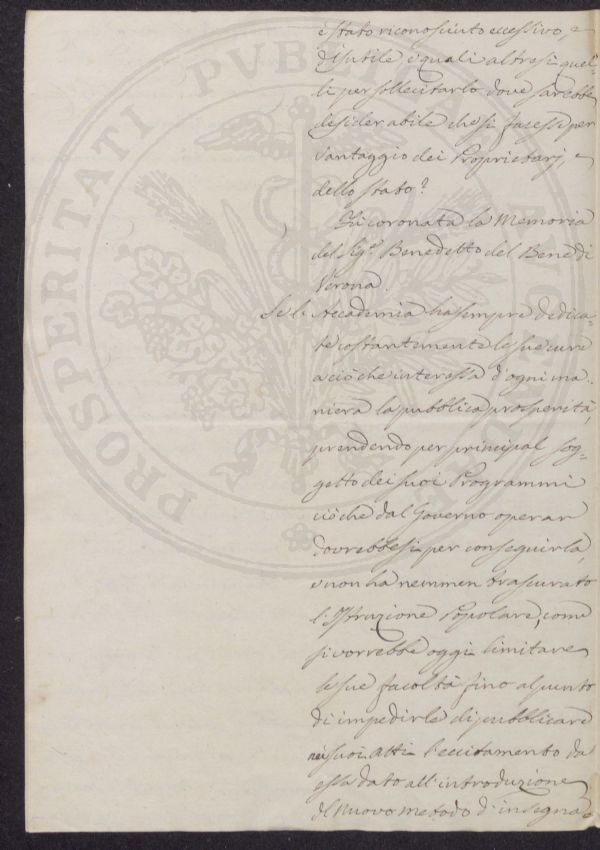 è stato riconosciuto eccessivo, e
disutile e quali altresì quel=
li per sollecitarlo dove sarebbe
desiderabile che si facesse per
vantaggio dei Proprietarj, e
dello stato?
Fù coronata la Memoria
del Sig.r Benedetto del Bene di
Verona.
Se l' Accademia ha sempre dedica=
te costantemente le sue cure
a ciò che interessa d'ogni ma=
niera la pubblica prosperità,
prendendo per principal sog=
getto dei suoi Programmi
ciò che dal Governo operar
dovrebbesi per conseguirla,
e non ha nemmen trascurato
l'Istruzione Popolare, come
si vorrebbe oggi limitare
le sue facoltà fino al punto
di impedirle di pubblicare
nei suoi Atti l'eccitamento da
essa dato all'introduzione
del nuovo metodo d'insegna=
PROSPERITATI PVBLICAE